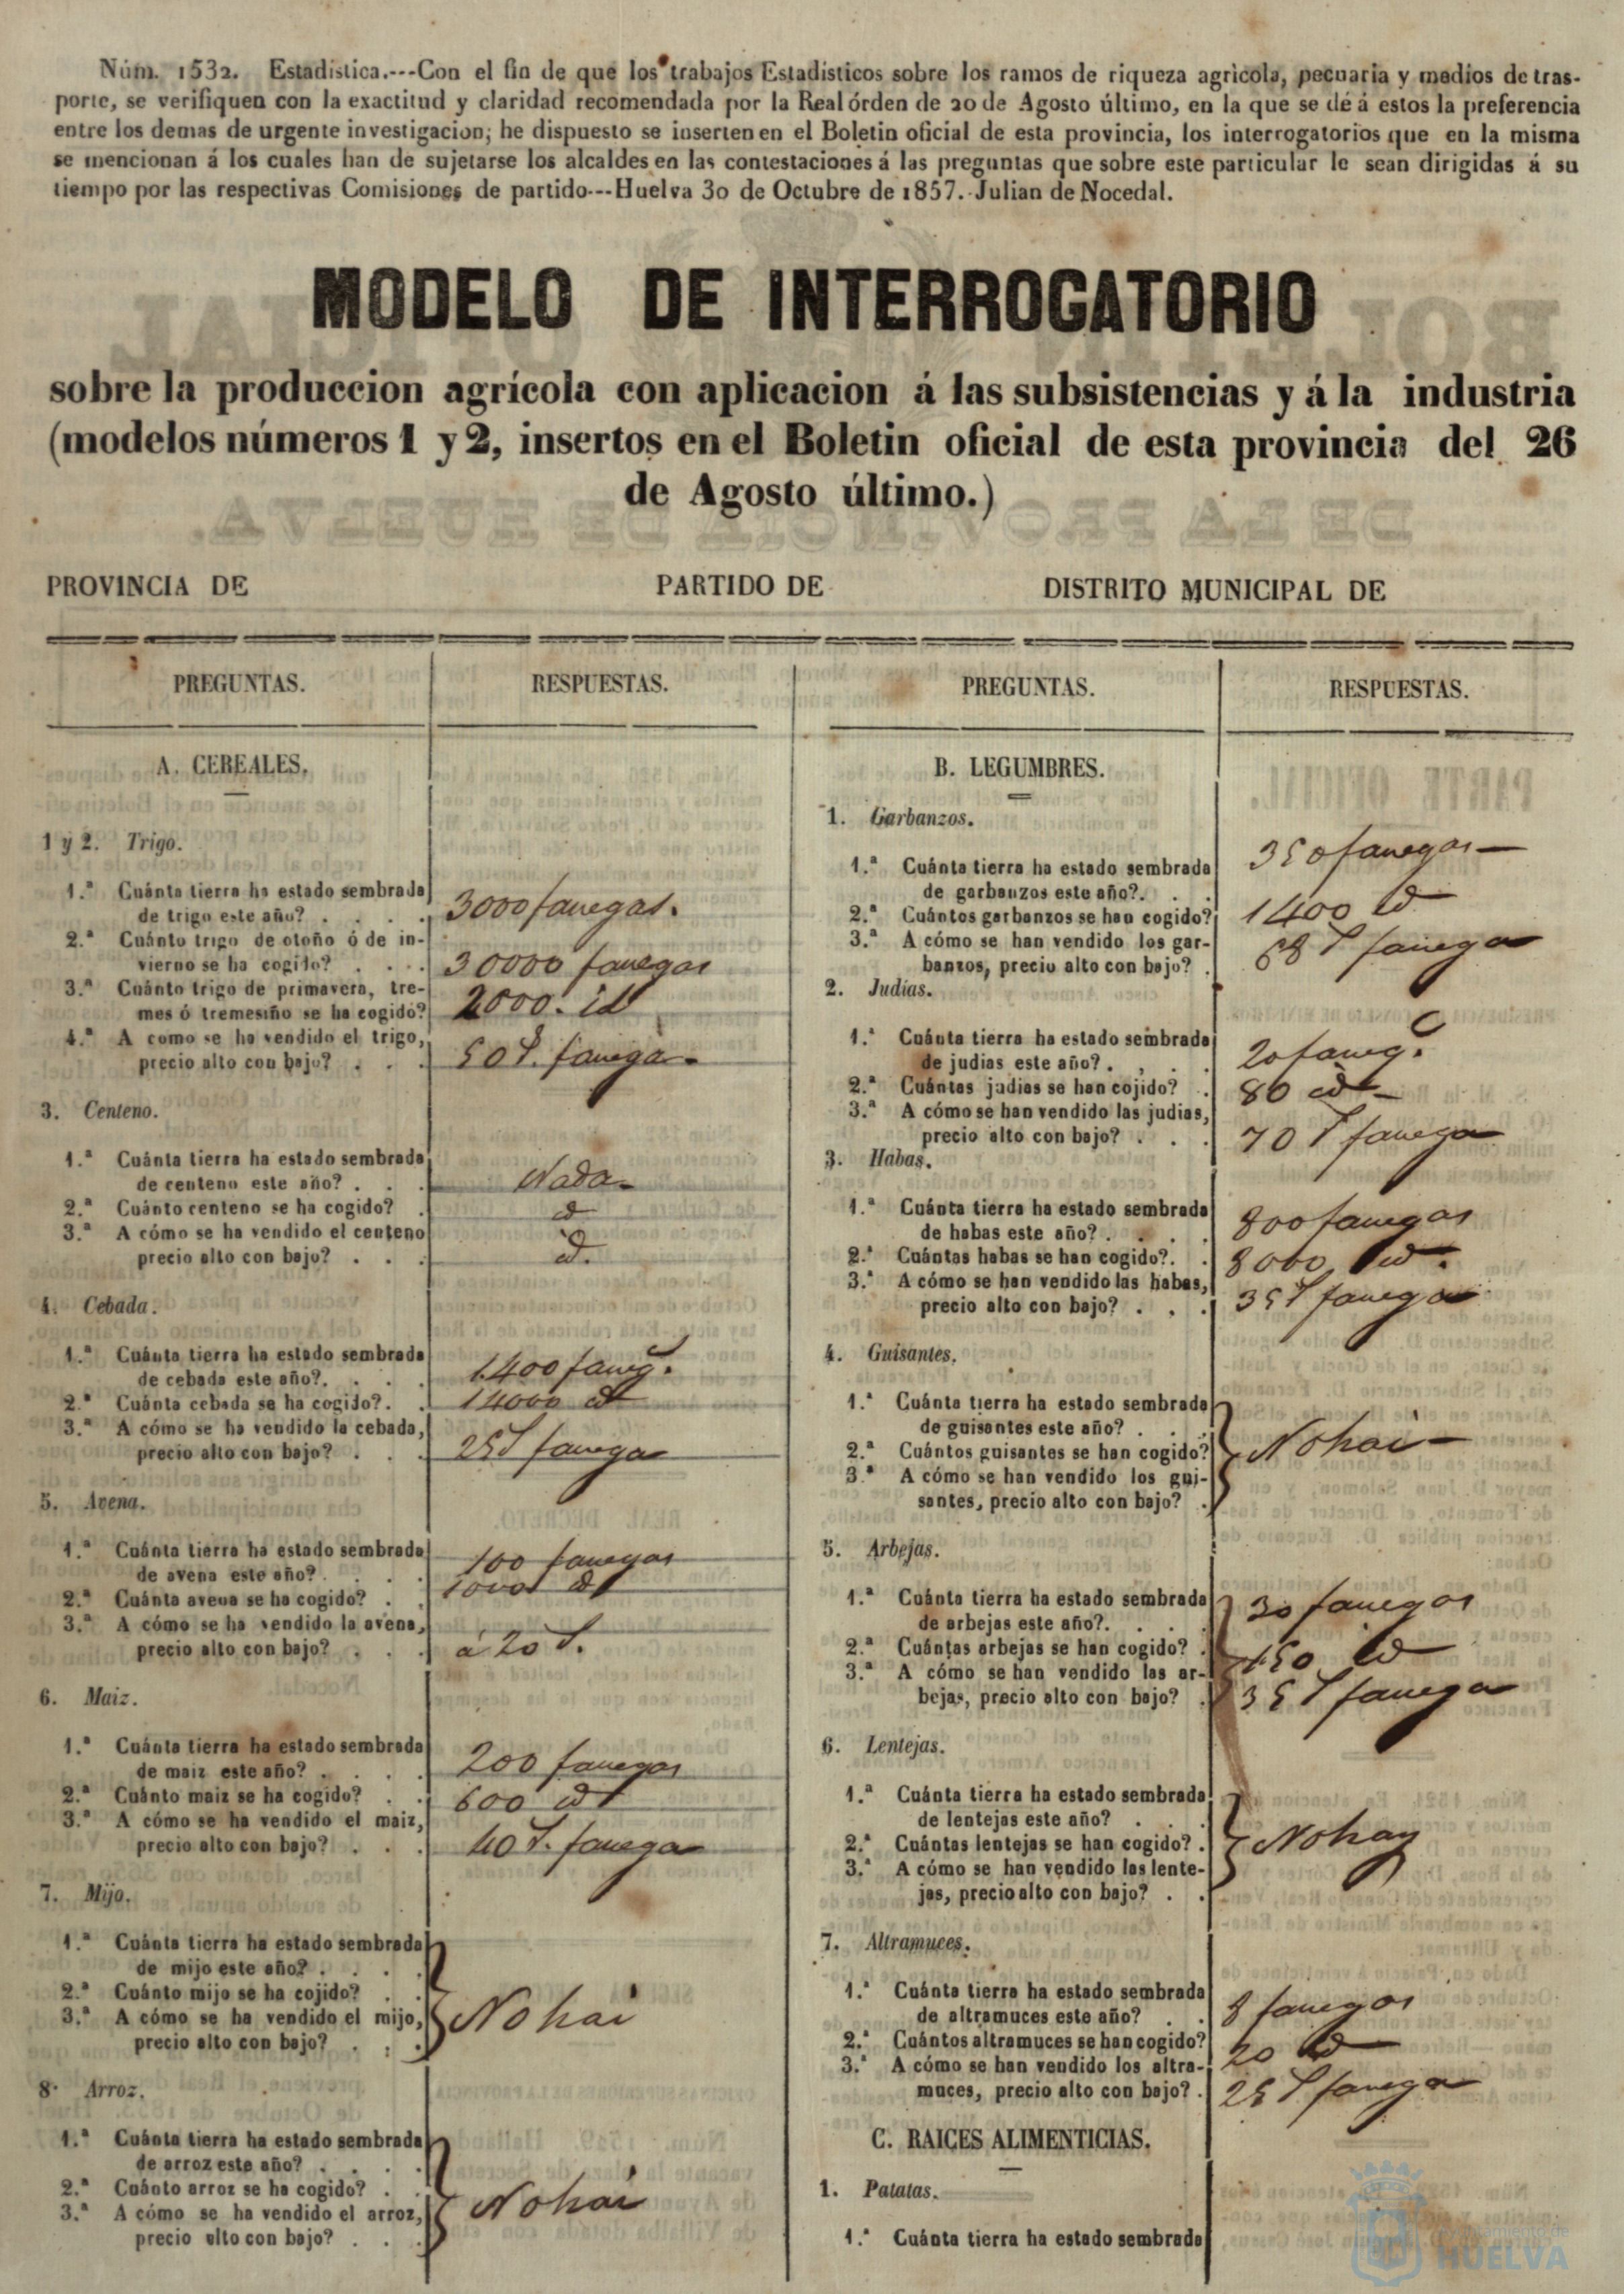 Núm. 1532. Estadistica.---Con el fin de que los trabajos Estadisticos sobre los ramos de riqueza agricola, pecuaria y medios de tras-
porte, se verifiquen con la exactitud y claridad recomendada por la Real órden de 20 de Agosto último, en la que se dé á estos la preferencia
entre los demas de urgente investigacion; he dispuesto se inserten en el Boletin oficial de esta provincia, los interrogatorios que en la misma
se mencionan á los cuales han de sujetarse los alcaldes en las contestaciones á las preguntas que sobre este particular le sean dirigidas á su
tiempo por las respectivas Comisiones de partido---Huelva 30 de Octubre de 1857. Julian de Nocedal.
MODELO DE INTERROGATORIO
sobre la produccion agrícola con aplicacion á las subsistencias y á la industria
(modelos números 1 y 2, insertos en el Boletin oficial de esta provincia del 26
de Agosto último.)
PROVINCIA DE PARTIDO DE DISTRITO MUNICIPAL DE
PREGUNTAS. RESPUESTAS.
A. CEREALES.
1 y 2. Trigo.
1.ª Cuánta tierra ha estado sembrada
de trigo este año? . . . . 3000 fanegas.
2.ª Cuánto trigo de otoño ó de in-
vierno se ha cogido? . . . 30000 fanegas
3.ª Cuánto trigo de primavera, tre-
mes ó tremesino se ha cogido? 2000. id
4.ª A como se ha vendido el trigo,
precio alto con bajo? . . . 50 r. fanega.
3. Centeno.
1.ª Cuánta tierra ha estado sembrada
de centeno este año? . . . Nada.
2.ª Cuánto centeno se ha cogido? . id
3.ª A cómo se ha vendido el centeno
precio alto con bajo? . . . id.
4. Cebada.
1.ª Cuánta tierra ha estado sembrada
de cebada este año?. . . . 1.400 faneg.s
2.ª Cuánta cebada se ha cogido? . . 14000 id
3.ª A cómo se ha vendido la cebada,
precio alto con bajo? . . . 25 r fanega
5. Avena.
1.ª Cuánta tierra ha estado sembrada
de avena este año? . . . . 100 fanegas
2.ª Cuánta avena se ha cogido? . . 1000 id
3.ª A cómo se ha vendido la avena,
precio alto con bajo? . . . á 20 r.
6. Maiz.
1.ª Cuánta tierra ha estado sembrada
de maiz este año? . . . . 200 fanegas
2.ª Cuánto maiz se ha cogido? . . 600 id
3.ª A cómo se ha vendido el maiz,
precio alto con bajo? . . . 40 r. fanega
7. Mijo.
1.ª Cuánta tierra ha estado sembrada
de mijo este año? . . . .
2.ª Cuánto mijo se ha cojido? . .
3.ª A cómo se ha vendido el mijo, No hai
precio alto con bajo? . . .
8. Arroz.
1.ª Cuánta tierra ha estado sembrada
de arroz este año? . . . .
2.ª Cuánto arroz se ha cogido? . . No hai
3.ª A cómo se ha vendido el arroz,
precio alto con bajo? . . .
PREGUNTAS. RESPUESTAS.
B. LEGUMBRES.
1. Garbanzos.
1.ª Cuánta tierra ha estado sembrada 350 fanegas
de garbanzos este año?. . .
2.ª Cuántos garbanzos se han cogido? 1400 id
3.ª A cómo se han vendido los gar-
banzos, precio alto con bajo? . 68 r fanega
2. Judias.
1.ª Cuánta tierra ha estado sembrada
de judias este año? . . . . 20 faneg.s
2.ª Cuántas judias se han cojido? . 80 id
3.ª A cómo se han vendido las judias,
precio alto con bajo? . . . 70 r fanega
3. Habas.
1.ª Cuánta tierra ha estado sembrada
de habas este año? . . . . 800 fanegas
2.ª Cuántas habas se han cogido?. . 8000 id.
3.ª A cómo se han vendido las habas,
precio alto con bajo? . . . 35 r fanega
4. Guisantes.
1.ª Cuánta tierra ha estado sembrada
de guisantes este año? . . .
2.ª Cuántos guisantes se han cogido? No hai
3.ª A cómo se han vendido los gui-
santes, precio alto con bajo? .
5. Arbejas.
1.ª Cuánta tierra ha estado sembrada 30 fanegas
de arbejas este año?. . . .
2.ª Cuántas arbejas se han cogido? . 150 id
3.ª A cómo se han vendido las ar-
bejas, precio alto con bajo? . 35 r fanega
6. Lentejas.
1.ª Cuánta tierra ha estado sembrada
de lentejas este año? . . .
2.ª Cuántas lentejas se han cogido? . No hay
3.ª A cómo se han vendido las lente-
jas, precio alto con bajo? . .
7. Altramuces.
1.ª Cuánta tierra ha estado sembrada
de altramuces este año? . . 8 fanegas
2.ª Cuántos altramuces se han cogido? 20 id
3.ª A cómo se han vendido los altra-
muces, precio alto con bajo? . 25 r fanega
C. RAICES ALIMENTICIAS.
1. Patatas.
1.ª Cuánta tierra ha estado sembrada
Ayuntamiento de
HUELVA